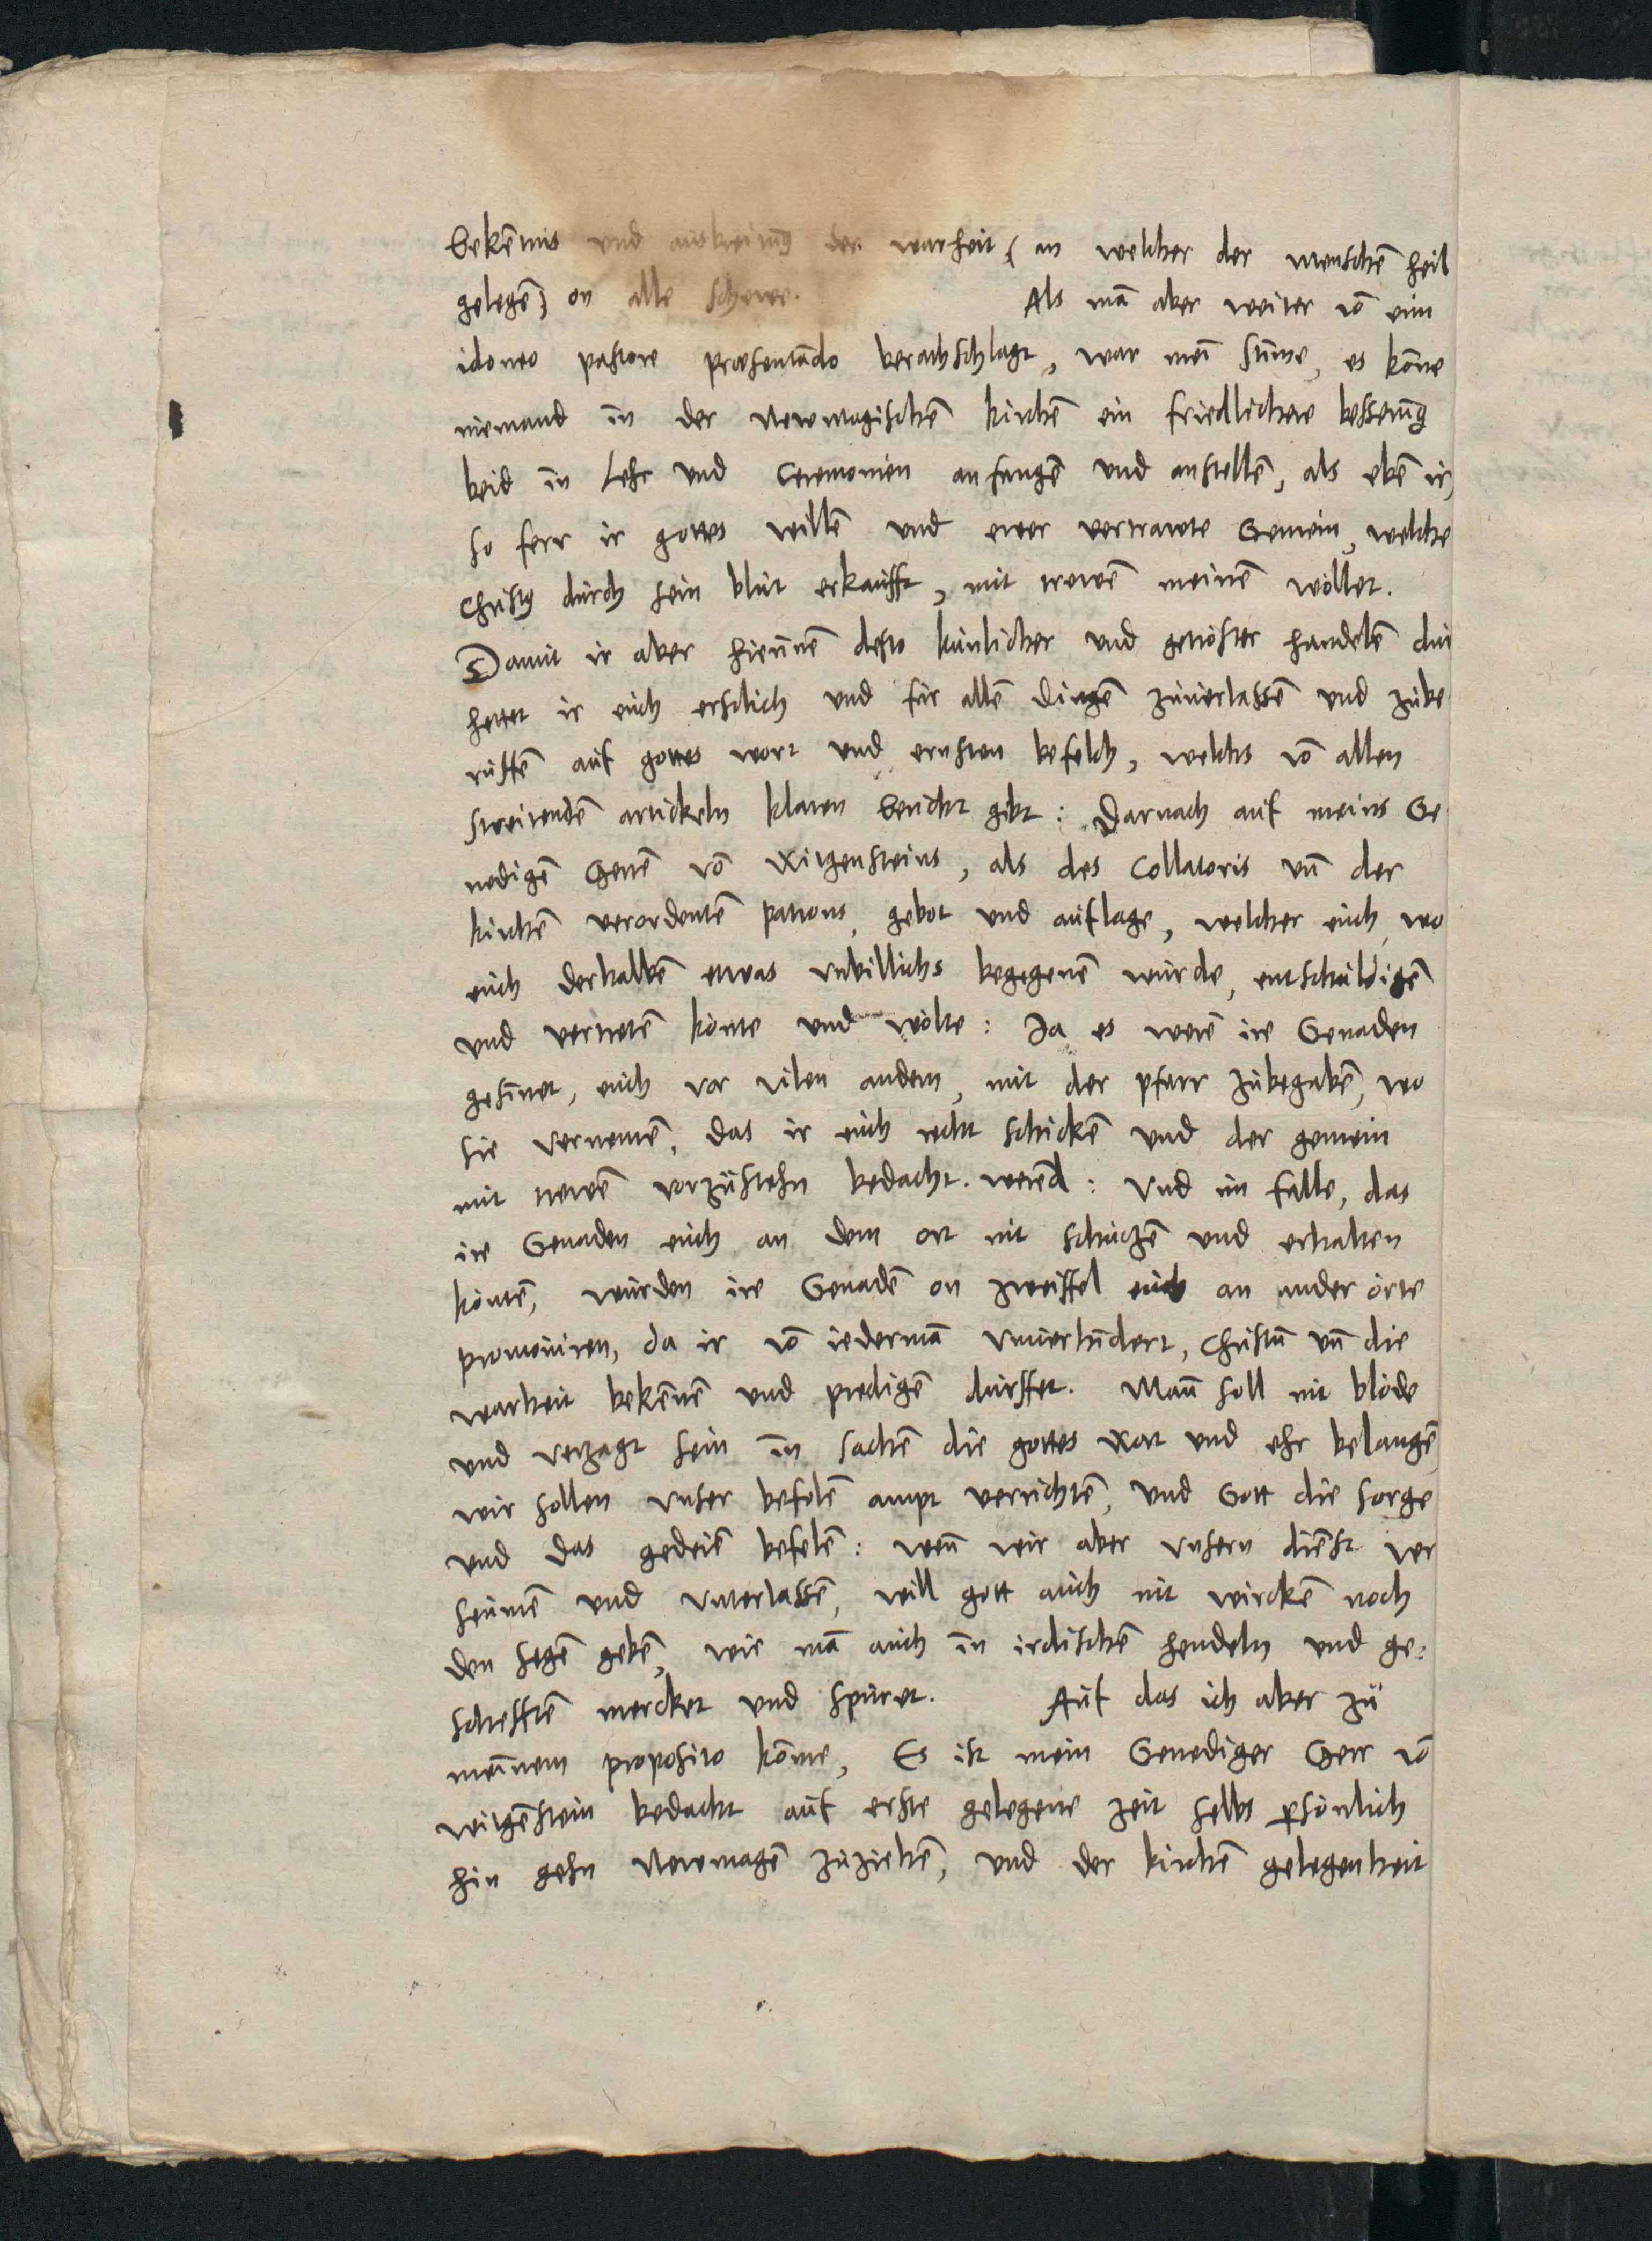 bekēnnis und auskreitūg der warheit (an welcher der menschē heil
gelegē) on alle schewe. Als mā aber weiter vō eim
idoneo pastore præsentādo berathschlagt, war mei stīme, es kōne
niemand in der Newmagischē kirchē ein friedlichere besserūg
beid in Lehr und Ceremonien anfangē und anstellē, als ebē ir,
so ferr ir gottes willē und ewer vertrawte Gemein, welche
Christus durch sein blut erkaufft, mit trewē meinē wöllet.
Damit ir aber hierinnē desto künlicher und getröster handelē
hettet ir euch erstlich und für allē dingē zuuerlassē und zube
ruffē auf gottes wort und ernsten befelch, welchs vō allen
streitendē artickeln klaren bericht gibt: Darnach auf meins Ge
nedigē Herrē vō Witgensteins, als des Collatoris uñ der
kirchē verordentē patrons, gebot und auflage, welcher euch, wo
euch derhalbē etwas unbillichs begegenē würde, entschuldigē
und vertretē könte und wölte: Ja es werē ire Genaden
gesinnet, euch vor vilen andern, mit der pfarr zubegabē, wo
sie vernemē, das ir euch recht schickē und der gemein
mit trewē vorzustehn bedacht werend: Und im falle, das
ire Genaden euch an dem ort nit schützē und erhalten
köntē, würden ire Genadē on zweiffel euch an ander örte
promouiren, da ir vō iedermā unuerhindert, Christū uñ die
warheit bekēnnē und predigē dürffet. Mañ soll nit blöde
und verzagt sein in sachē die gottes wort und ehr belangē,
wir sollen unser befolē ampt verrichtē, und Gott die sorge
und das gedeiē befelē: weñ wir aber unsern diēst ver
seumē und unterlassē, will gott auch nit wirckē noch
den segē gebē, wie mā auch in irdischē hendeln und ge:
schefftē mercket und spüret. Auf das ich aber zu
meinem proposito kōme, Es ist mein Genediger Herr vō
witgēstein bedacht auf erste gelegene zeit selbs persönlich
hin gehn Newmagē zuziehē, und der kirchē gelegenheit